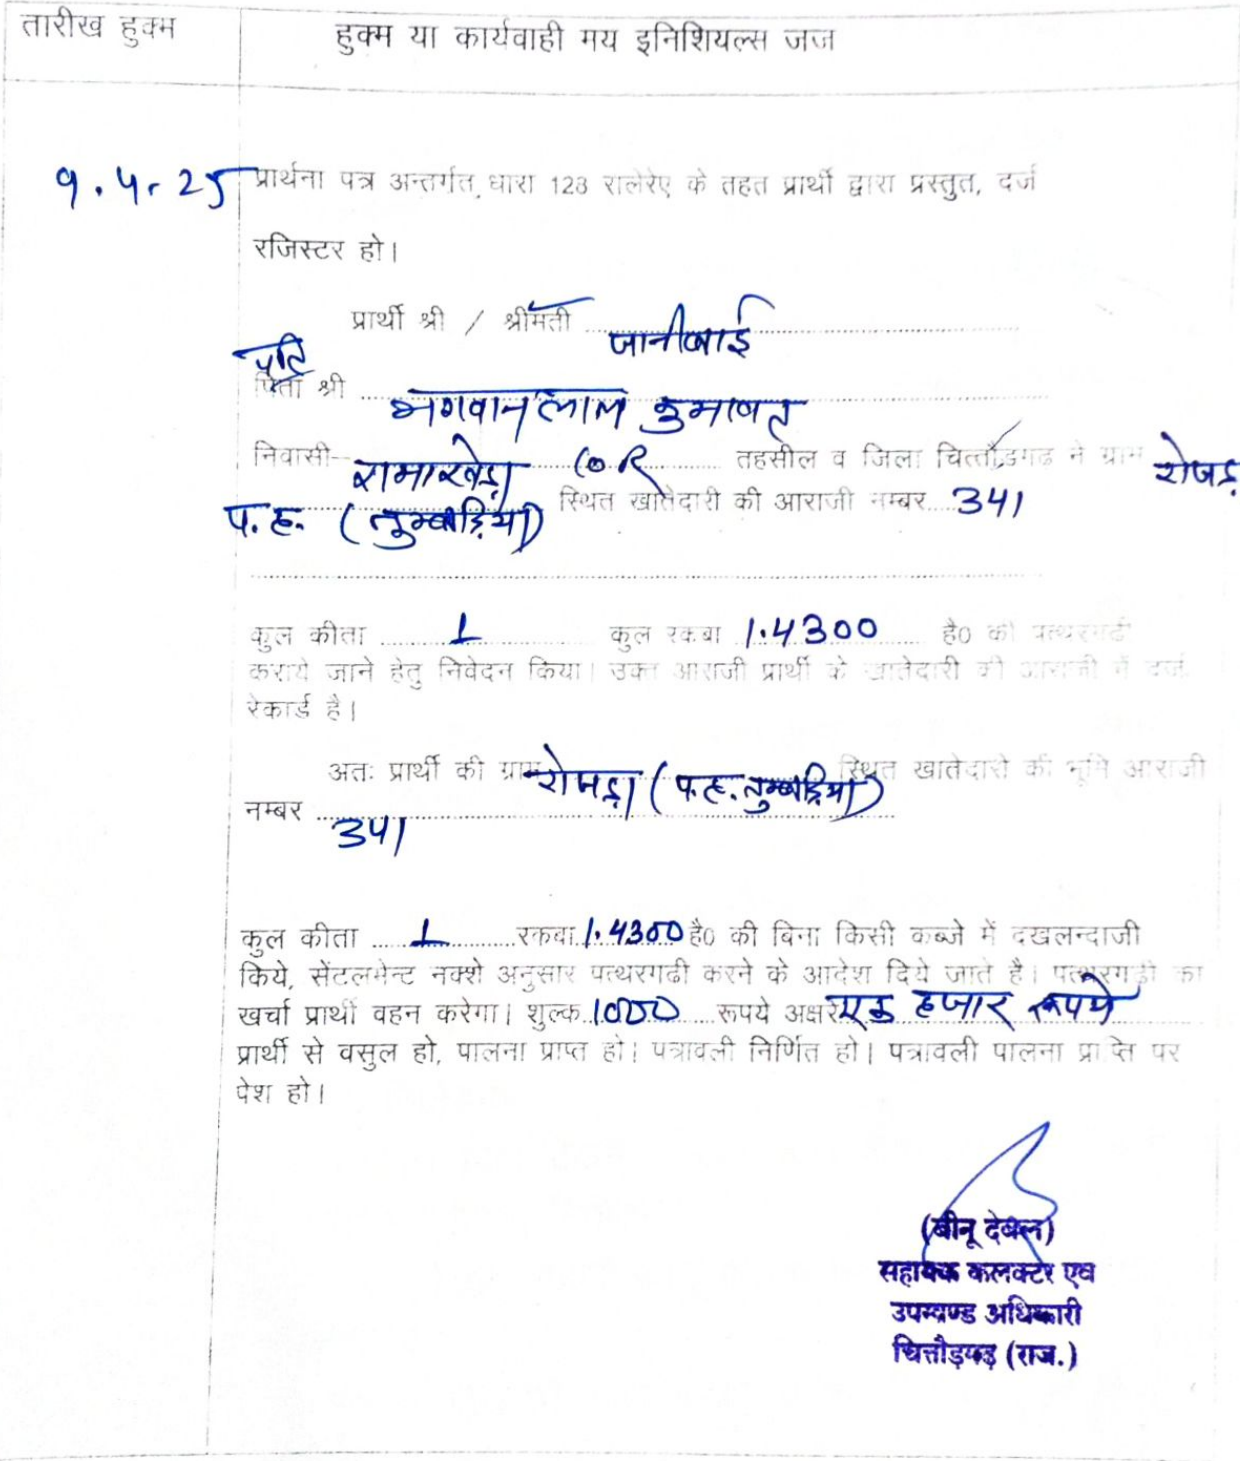 तारीख हुक्म
हुक्म या कार्यवाही मय इनिशियल्स जज
9.4.25
प्रार्थना पत्र अन्तर्गत धारा 128 रालेरेए के तहत प्रार्थी द्वारा प्रस्तुत, दर्ज
रजिस्टर हो।
प्रार्थी श्री / श्रीमती जानीबाई
पति
पिता श्री भगवानलाल कुमावत
निवासी रामाखेड़ा तहसील व जिला चित्तौडगढ ने ग्राम रोजड़ा
प.ह. (तुम्बड़िया) स्थित खातेदारी की आराजी नम्बर 341
कुल कीता 1 कुल रकबा 1.4300 है0 की पत्थरगढी
कराये जाने हेतु निवेदन किया। उक्त आराजी प्रार्थी के खातेदारी की आराजी में दर्ज
रेकार्ड है।
अतः प्रार्थी की ग्राम रोजड़ा (प.ह. तुम्बड़िया) स्थित खातेदारी की भूमि आराजी
नम्बर 341
कुल कीता 1 रकबा 1.4300 है0 की बिना किसी कब्जे में दखलन्दाजी
किये, सेंटलमेन्ट नक्शे अनुसार पत्थरगढी करने के आदेश दिये जाते है। पत्थरगढ़ी का
खर्चा प्रार्थी वहन करेगा। शुल्क 1000 रूपये अक्षरे एक हजार रूपये
प्रार्थी से वसुल हो, पालना प्राप्त हो। पत्रावली निर्णित हो। पत्रावली पालना प्राप्ति पर
पेश हो।
(बीनू देवल)
सहायक कलक्टर एवं
उपखण्ड अधिकारी
चित्तौड़गढ़ (राज.)